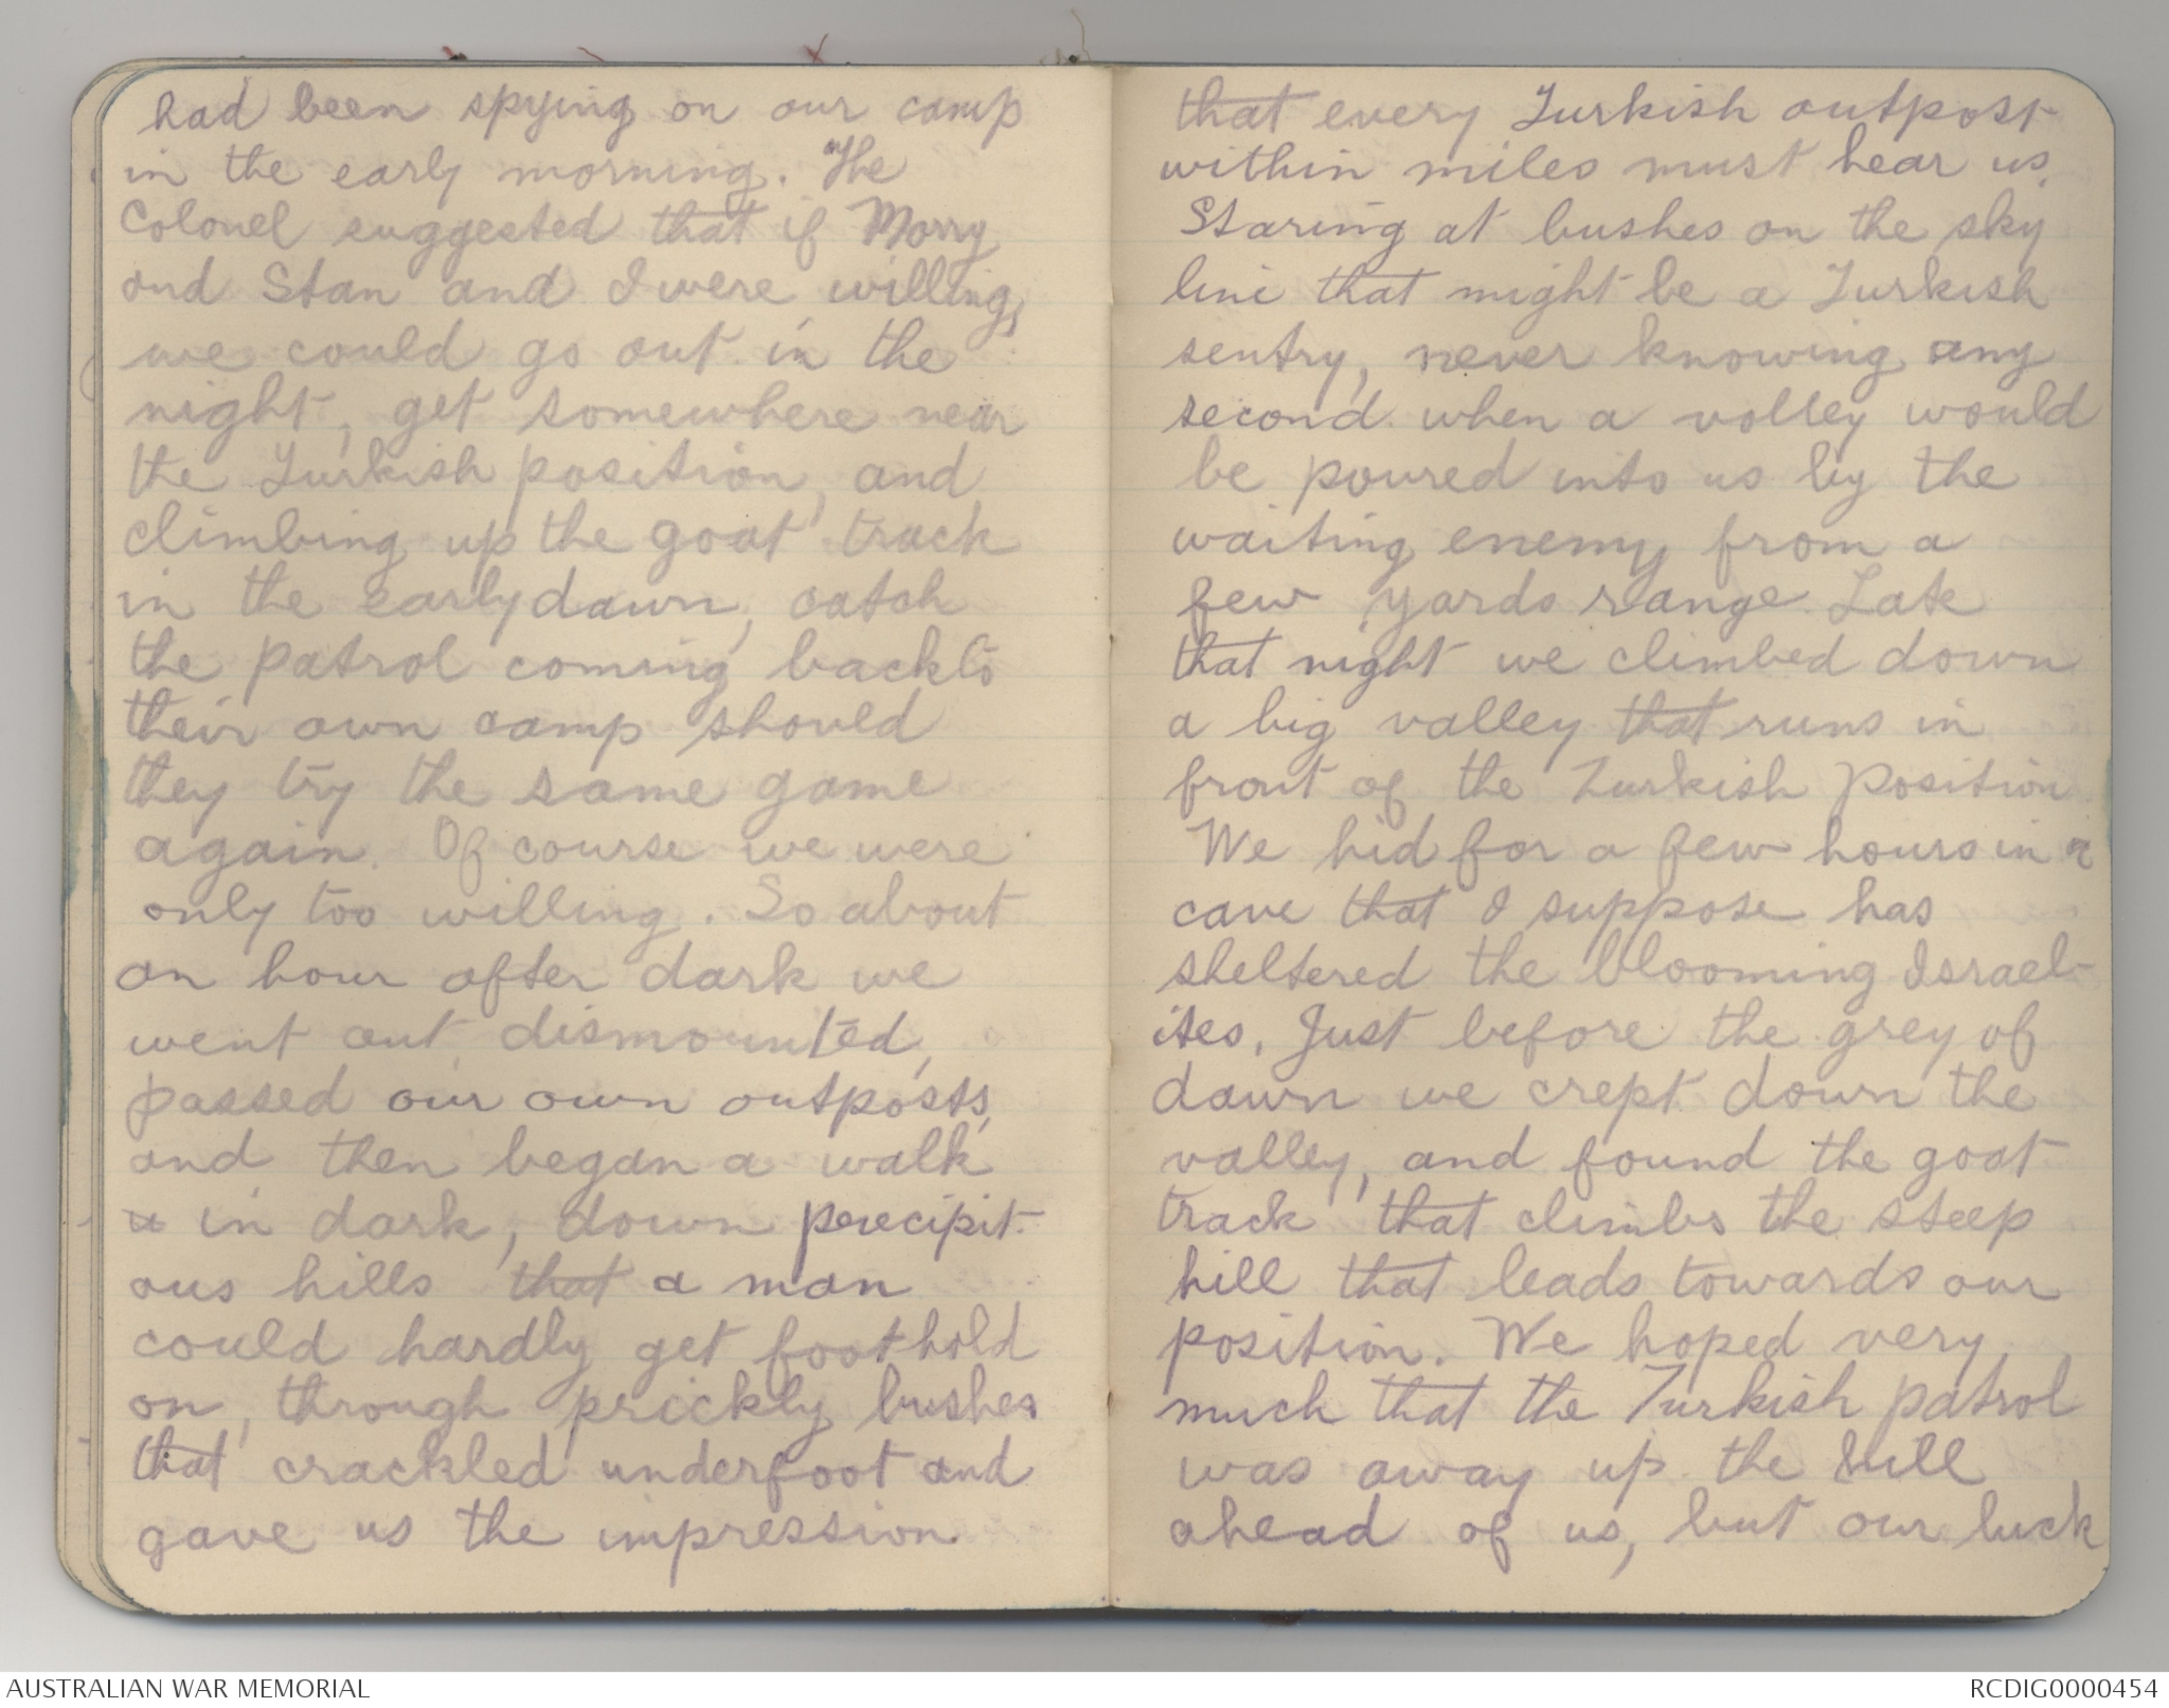 had been spying on our camp
in the early morning. The
Colonel suggested that if Morry
and Stan and I were willing,
we could go out in the
night, get somewhere near
the Turkish position, and
climbing up the goat track
in the early dawn, catch
the patrol coming back to
their own camp should
they try the same game
again. Of course we were
only too willing. So about
an hour after dark we
went out dismounted,
passed our own outposts,
and then began a walk
in dark, down perecipit-
ous hills that a man
could hardly get foothold
on, through prickly bushes
that crackled underfoot and
gave us the impression
that every Turkish outpost
within miles must hear us.
Staring at bushes on the sky
line that might be a Turkish
sentry, never knowing any
second when a volley would
be poured into us by the
waiting enemy from a
few yards range. Late
that night we climbed down
a big valley that runs in
front of the Turkish position
We hid for a few hours in a
cave that I suppose has
sheltered the blooming Israel-
ites. Just before the grey of
dawn we crept down the
valley, and found the goat
track that climbs the steep
hill that leads towards our
position. We hoped very
much that the Turkish patrol
was away up the hill
ahead of us, but our luck
AUSTRALIAN WAR MEMORIAL
RCDIG0000454